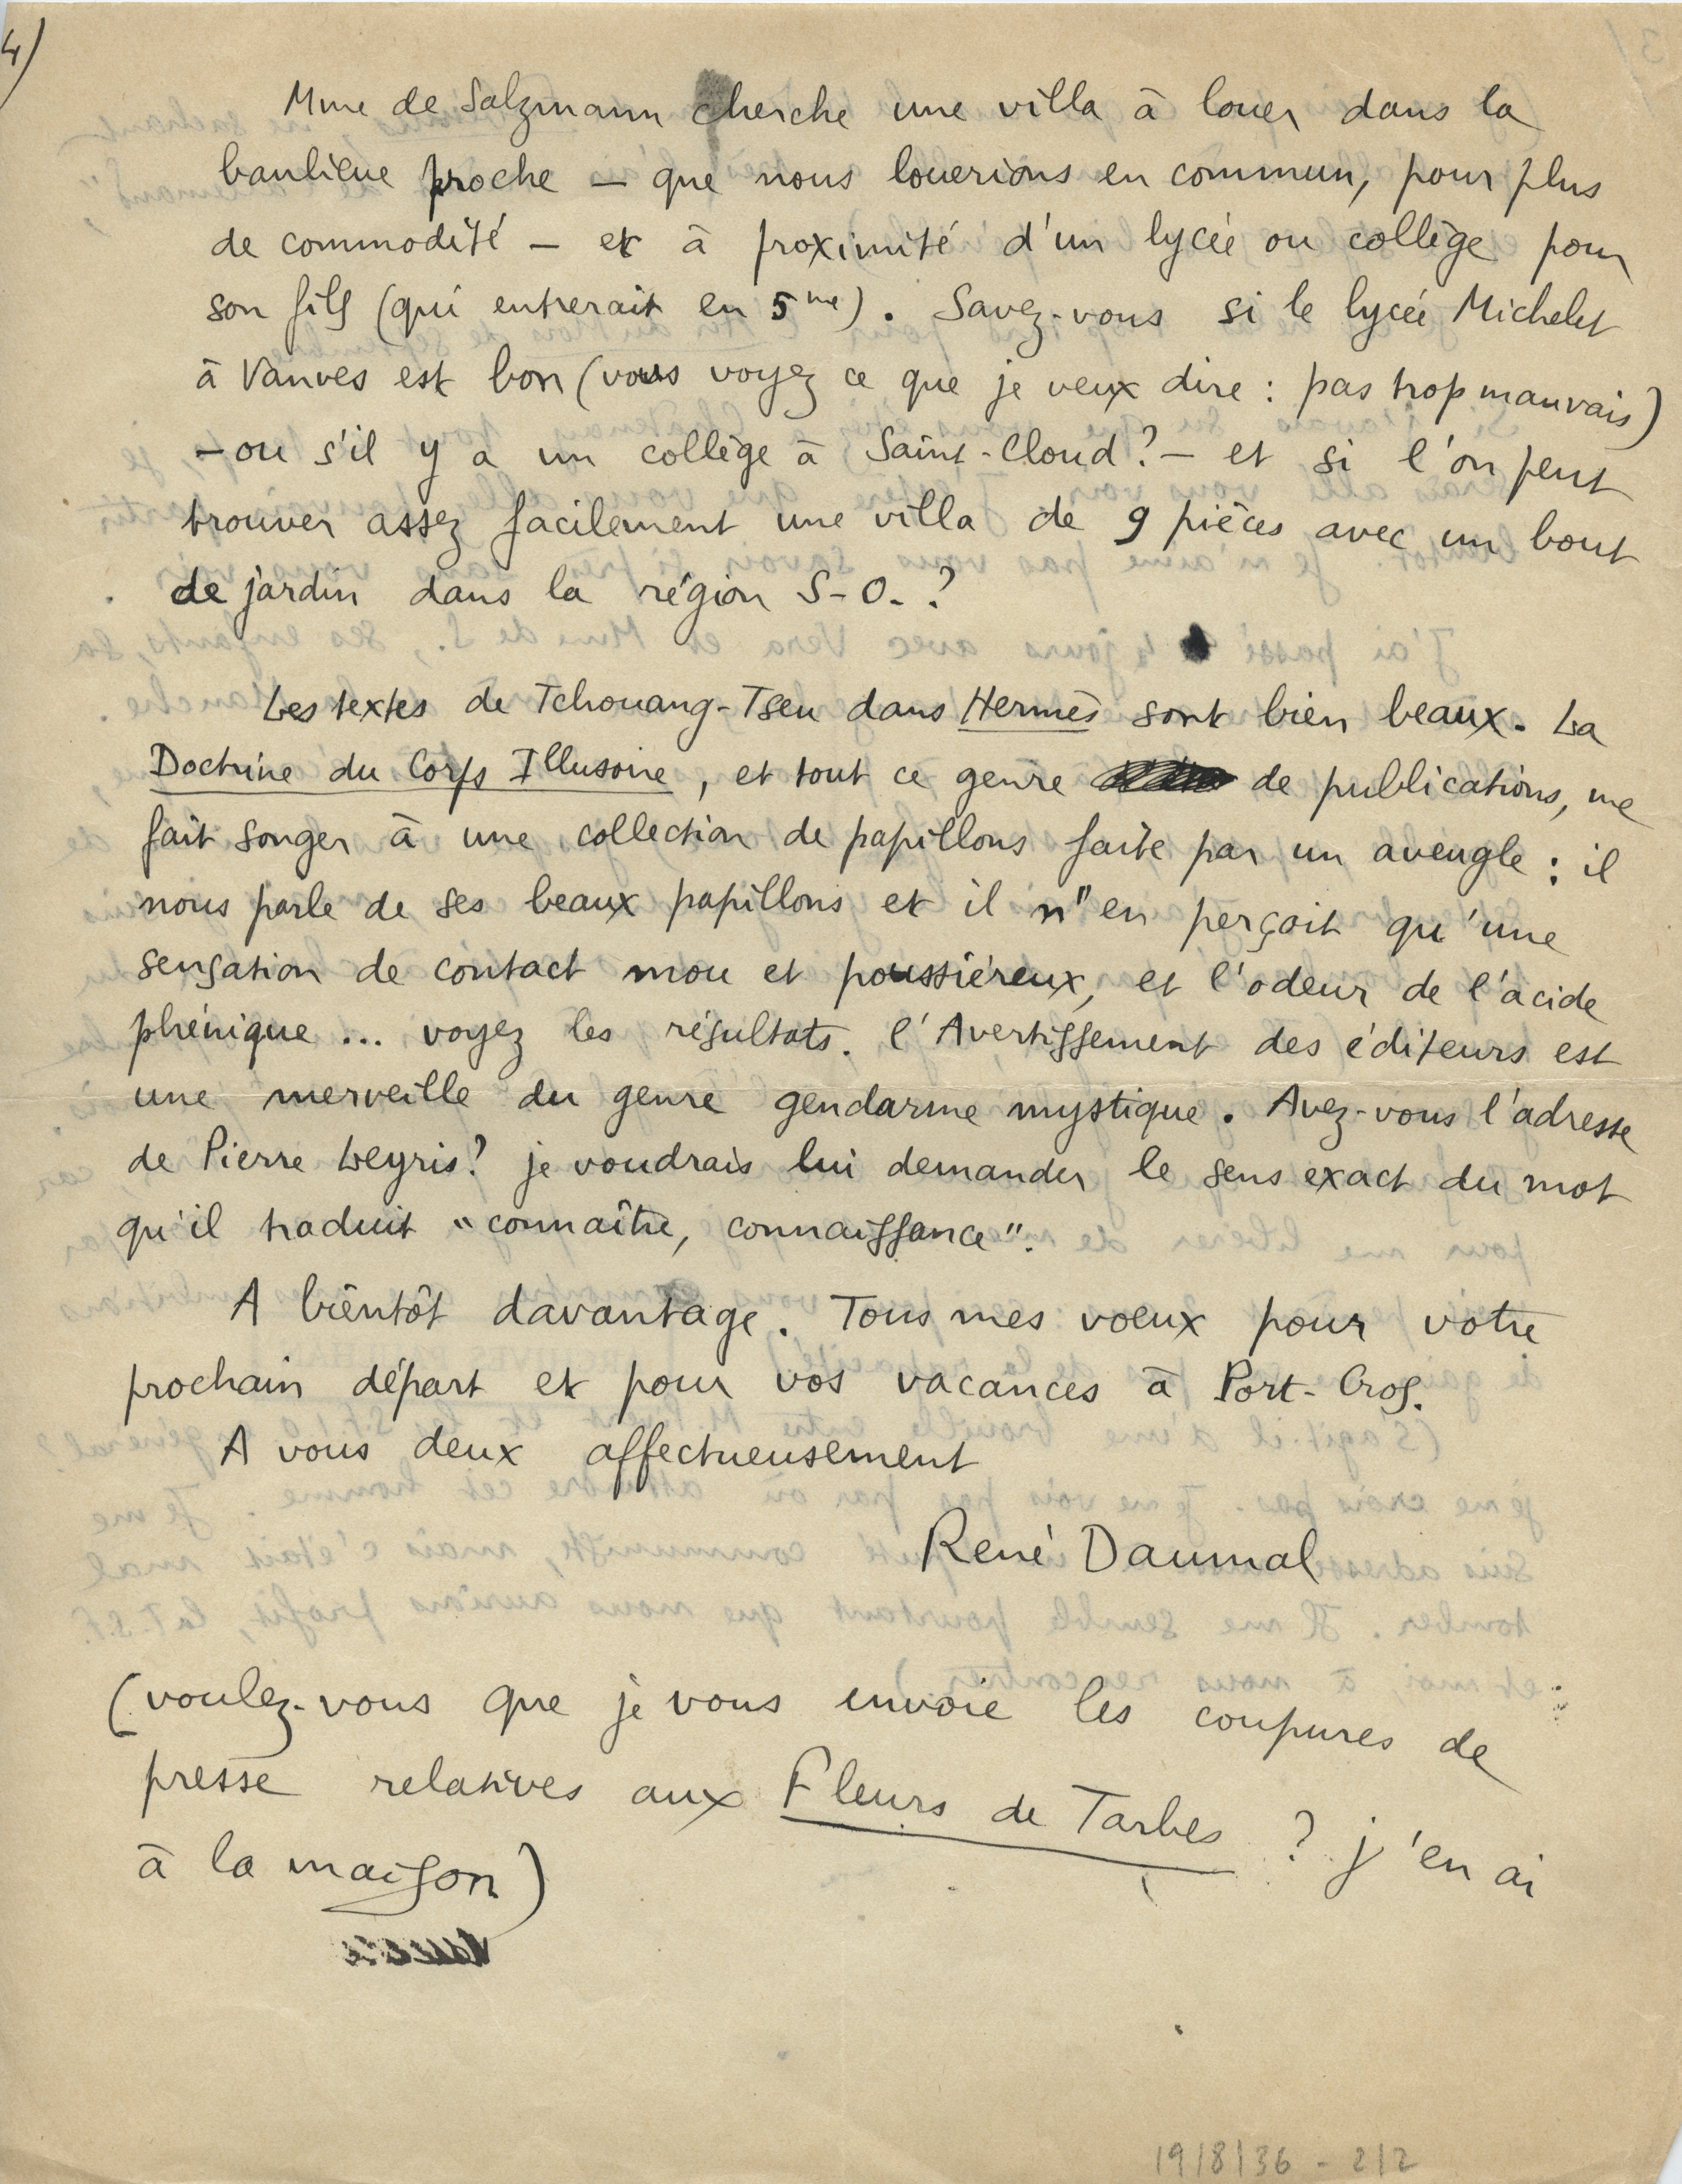 4)
Mme de Salzmann cherche une villa à louer dans la
banlieue proche — que nous louerions en commun, pour plus
de commodité — et à proximité d'un lycée ou collège pour
son fils (qui entrerait en 5me). Savez-vous si le lycée Michelet
à Vanves est bon (vous voyez ce que je veux dire : pas trop mauvais)
— ou s'il y a un collège à Saint-Cloud ? — et si l'on peut
trouver assez facilement une villa de 9 pièces avec un bout
de jardin dans la région S-O. ?
Les textes de Tchouang-Tseu dans Hermès sont bien beaux. La
Doctrine du Corps Illusoire, et tout ce genre de publications, me
fait songer à une collection de papillons faite par un aveugle : il
nous parle de ses beaux papillons et il n'en perçoit qu'une
sensation de contact mou et poussiéreux, et l'odeur de l'acide
phénique... voyez les résultats. l'Avertissement des éditeurs est
une merveille du genre gendarme mystique. Avez-vous l'adresse
de Pierre Leyris ? je voudrais lui demander le sens exact du mot
qu'il traduit "connaître, connaissance".
A bientôt davantage. Tous mes voeux pour votre
prochain départ et pour vos vacances à Port-Cros.
A vous deux affectueusement
René Daumal
(voulez-vous que je vous envoie les coupures de
presse relatives aux Fleurs de Tarbes ? j'en ai
à la maison)
19/8/36 - 2/2